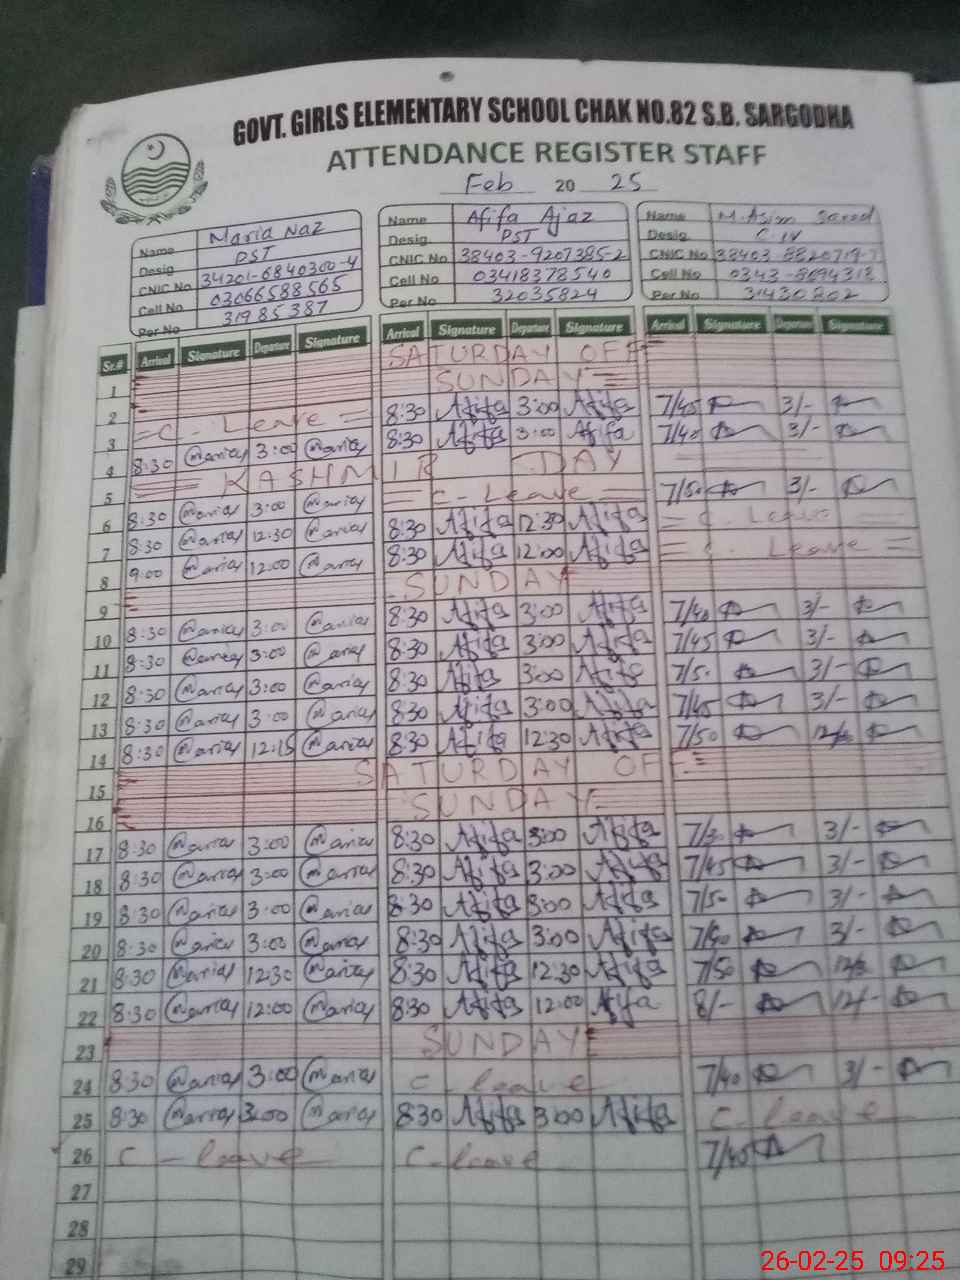 GOVT. GIRLS ELEMENTARY SCHOOL CHAK NO.82 S.B. SARGODHA
ATTENDANCE REGISTER STAFF
Feb 20 25
Name Maria Naz
Desig PST
CNIC No 34201-6840300-4
Cell No 03066588565
Per No 31985387
Name Afifa Ajaz
Desig. PST
CNIC No 38403-9207385-2
Cell No 03418378540
Per No 32035824
Name M. Asim
Desig
CNIC No 38403-8820719-7
Cell No 0343-8694313
Per No 31430802
Sr.# Arrival Signature Deparure Signature Arrival Signature Deparure Signature Arrival Signature Deparure Signature
1 SATURDAY OFF
2 SUNDAY
3 = C. Leave = 8:30 Afifa 3:00 Afifa 7/45 3/-
4 8:30 Maria 3:00 Maria 8:30 Afifa 3:00 Afifa 7/40 3/-
5 = KASHMIR DAY
6 8:30 Maria 3:00 Maria = C-Leave = 7/50 3/-
7 8:30 Maria 12:30 Maria 8:30 Afifa 12:30 Afifa = C. Leave
8 9:00 Maria 12:00 Maria 8:30 Afifa 12:00 Afifa = C. Leave =
9 SUNDAY
10 8:30 Maria 3:00 Maria 8:30 Afifa 3:00 Afifa 7/40 3/-
11 8:30 Maria 3:00 Maria 8:30 Afifa 3:00 Afifa 7/45 3/-
12 8:30 Maria 3:00 Maria 8:30 Afifa 3:00 Afifa 7/50 3/-
13 8:30 Maria 3:00 Maria 8:30 Afifa 3:00 Afifa 7/45 3/-
14 8:30 Maria 12:15 Maria 8:30 Afifa 12:30 Afifa 7/50
15 SATURDAY OFF
16 SUNDAY
17 8:30 Maria 3:00 Maria 8:30 Afifa 3:00 Afifa 7/30 3/-
18 8:30 Maria 3:00 Maria 8:30 Afifa 3:00 Afifa 7/45 3/-
19 8:30 Maria 3:00 Maria 8:30 Afifa 3:00 Afifa 7/50 3/-
20 8:30 Maria 3:00 Maria 8:30 Afifa 3:00 Afifa 7/40 3/-
21 8:30 Maria 12:30 Maria 8:30 Afifa 12:30 Afifa 7/50
22 8:30 Maria 12:00 Maria 8:30 Afifa 12:00 Afifa 8/- 12/-
23 SUNDAY
24 8:30 Maria 3:00 Maria C-leave 7/40 3/-
25 8:30 Maria 3:00 Maria 8:30 Afifa 3:00 Afifa C-leave
26 C-leave C-leave 7/45
27
28
29
26-02-25 09:25